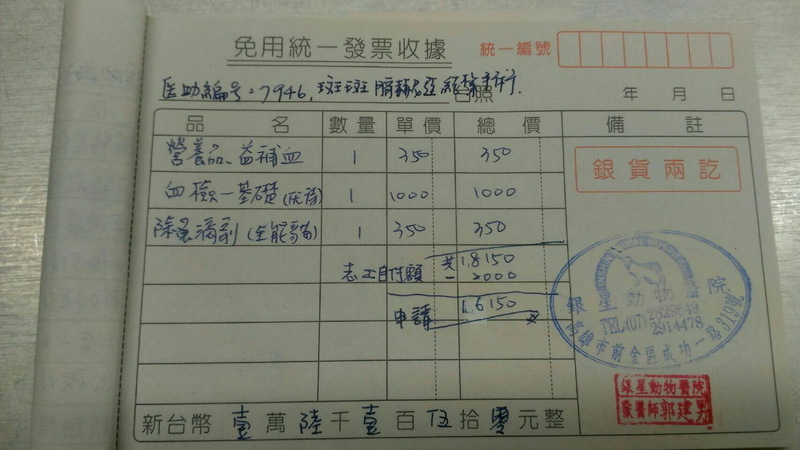 免用統一發票收據
統一編號
医助編号:7946, 斑斑
台照
年 月 日
品 名 數量 單價 總價 備註
營養品-益補血 1 350 350
血檢-基礎 1 1000 1000
除蚤滴劑(全能貓) 1 350 350
志工自付額 共 18150
- 2000
申請 16150
銀貨兩訖
銀星動物 院
TEL(07)
2914478
高雄市前金區成功一路319號
銀星動物醫院
獸醫師郭建男
新台幣 壹 萬 陸 千 壹 百 伍 拾 零 元整